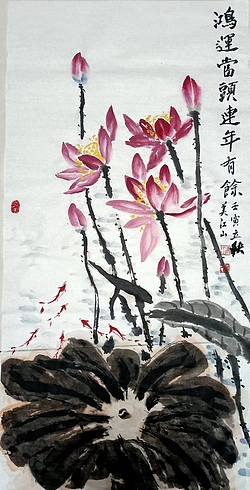 鴻運當頭連年有餘
壬寅立秋
吴江山